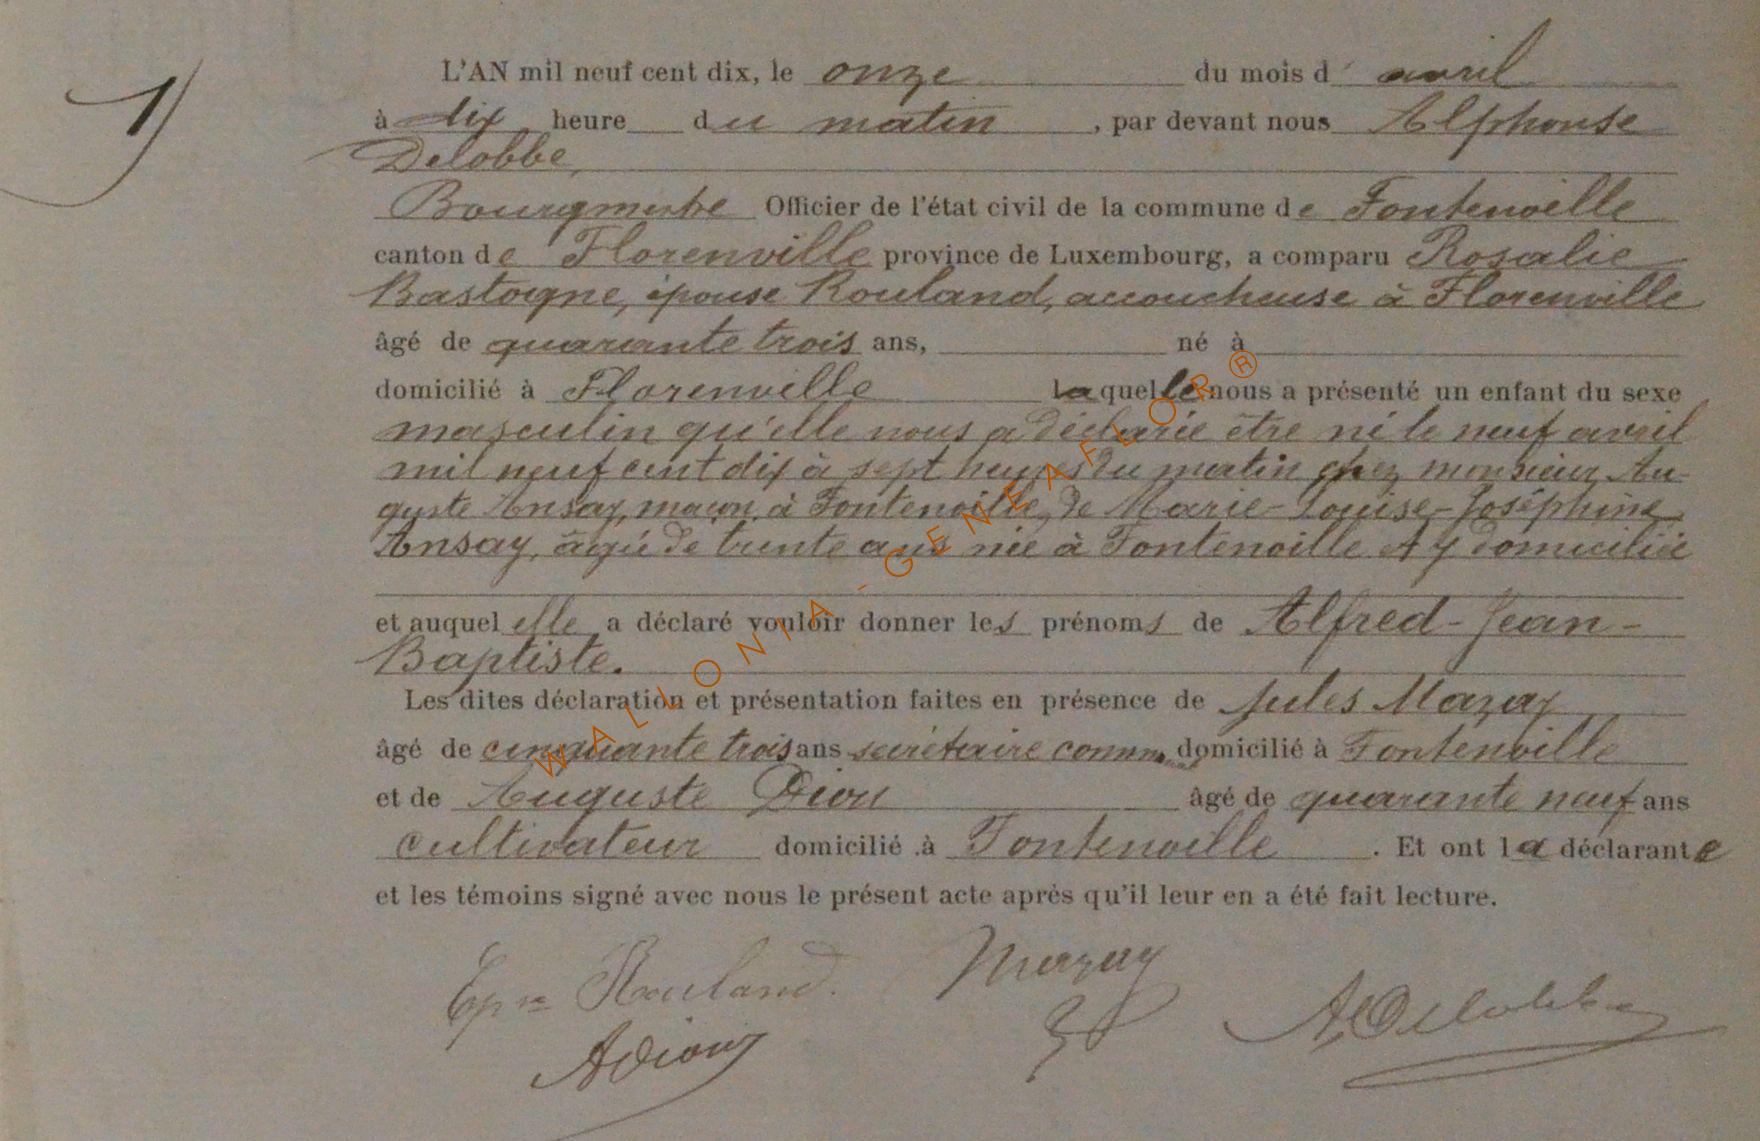 L'AN mil neuf cent dix, le onze du mois d' avril
à dix heure du matin, par devant nous Alphonse
Delobbe,
Bourgmestre Officier de l'état civil de la commune de Fontenoille
canton de Florenville province de Luxembourg, a comparu Rosalie
Bastogne, épouse Rouland, accoucheuse à Florenville
âgé de quarante trois ans, né à
domicilié à Florenville laquelle nous a présenté un enfant du sexe
masculin qu'elle nous a déclarée être né le neuf avril
mil neuf cent dix à sept heures du matin chez monsieur Au-
guste Ansay, maçon à Fontenoille, de Marie-Louise-Joséphine
Ansay, âgée de trente ans née à Fontenoille et y domiciliée
et auquel elle a déclaré vouloir donner les prénoms de Alfred-Jean-
Baptiste.
Les dites déclaration et présentation faites en présence de Jules Mazay
âgé de cinquante trois ans secrétaire comm. domicilié à Fontenoille
et de Auguste Dion âgé de quarante neuf ans
cultivateur domicilié à Fontenoille. Et ont la déclarante
et les témoins signé avec nous le présent acte après qu'il leur en a été fait lecture.
Epse Rouland. Mazay
ADion ADelobbe
WALLONIA-GENEAFLOR®